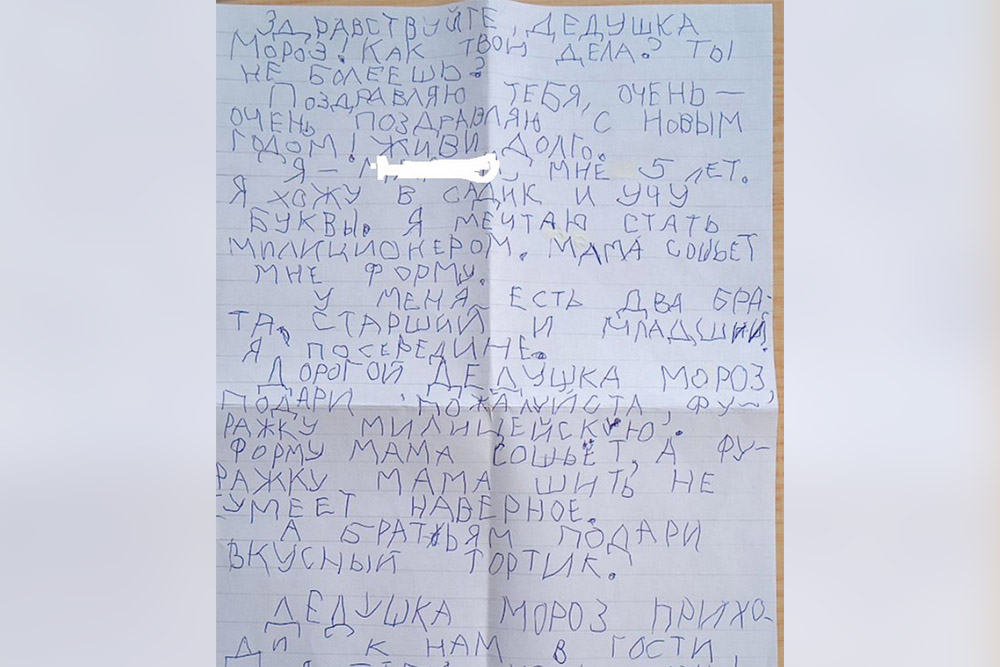 ЗДРАВСТВУЙТЕ, ДЕДУШКА
МОРОЗ! КАК ТВОИ ДЕЛА? ТЫ
НЕ БОЛЕЕШЬ?
ПОЗДРАВЛЯЮ ТЕБЯ, ОЧЕНЬ —
ОЧЕНЬ ПОЗДРАВЛЯЮ С НОВЫМ
ГОДОМ! ЖИВИ ДОЛГО.
Я — МНЕ 5 ЛЕТ.
Я ХОЖУ В САДИК И УЧУ
БУКВЫ. Я МЕЧТАЮ СТАТЬ
МИЛИЦИОНЕРОМ. МАМА СОШЬЕТ
МНЕ ФОРМУ.
У МЕНЯ ЕСТЬ ДВА БРА-
ТА, СТАРШИЙ И МЛАДШИЙ.
Я ПОСЕРЕДИНЕ.
ДОРОГОЙ ДЕДУШКА МОРОЗ,
ПОДАРИ ПОЖАЛУЙСТА, ФУ-
РАЖКУ МИЛИЦЕЙСКУЮ.
ФОРМУ МАМА СОШЬЁТ, А ФУ-
РАЖКУ МАМА ШИТЬ НЕ
УМЕЕТ НАВЕРНОЕ.
А БРАТЬЯМ ПОДАРИ
ВКУСНЫЙ ТОРТИК.
ДЕДУШКА МОРОЗ ПРИХО-
ДИ К НАМ В ГОСТИ,